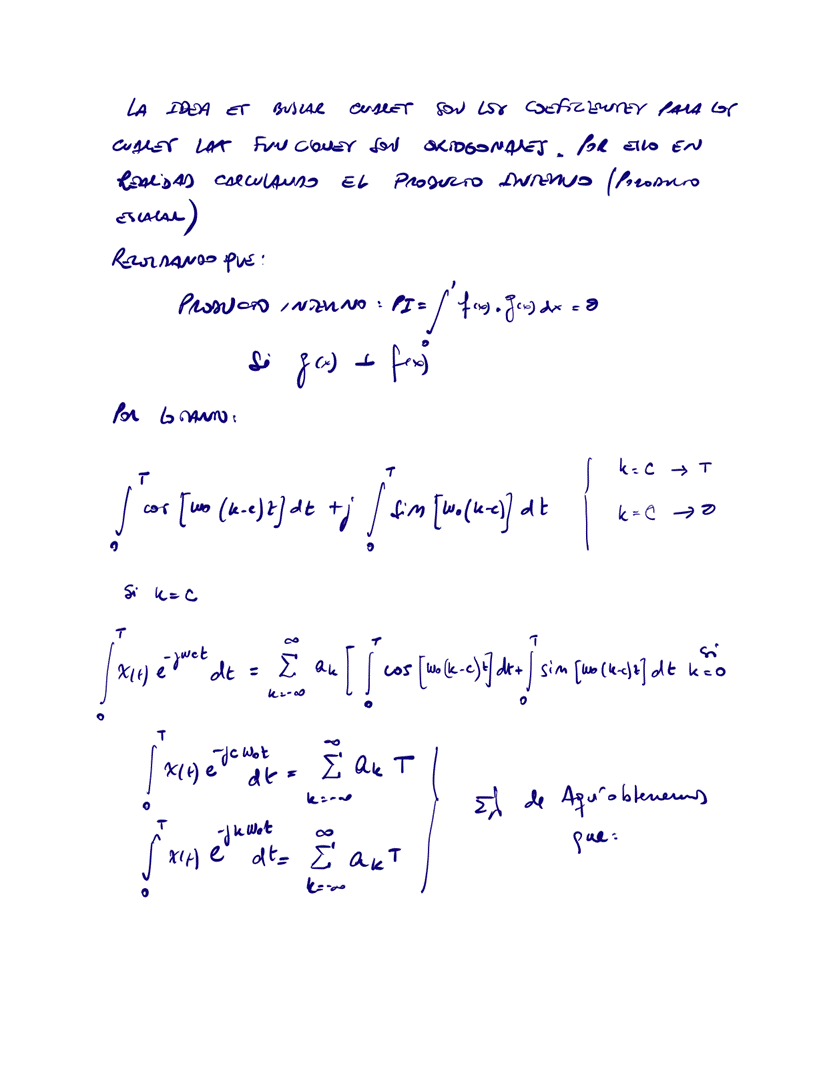 LA IDEA ES BUSCAR CUALES SON LOS COEFICIENTES PARA LOS
CUALES LAS FUNCIONES SON ORTOGONALES. POR ELLO EN
REALIDAD CALCULANDO EL PRODUCTO INTERNO (PRODUCTO
ESCALAR)
RECORDANDO QUE:
PRODUCTO INTERNO : PI = ∫₀¹ f(x) · g(x) dx = 0
Si g(x) ⊥ f(x)
Por lo tanto:
∫₀ᵀ cos [w₀ (k-c) t] dt + j ∫₀ᵀ sin [w₀ (k-c)] dt { k = c → T
k = c → 0
Si k = c
∫₀ᵀ x(t) e^{-jwct} dt = ∑_{k=-∞}^{∞} ak [ ∫₀ᵀ cos [w₀(k-c)t] dt + ∫₀ᵀ sin [w₀(k-c)t] dt si k=0
∫₀ᵀ x(t) e^{-jcw₀t} dt = ∑_{k=-∞}^{∞} ak T
de Aquí obtenemos
que:
∫₀ᵀ x(t) e^{-jkw₀t} dt = ∑_{k=-∞}^{∞} ak T